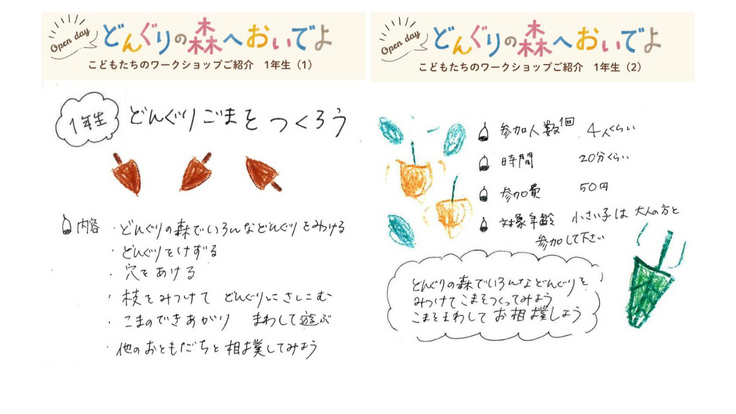 Open day
どんぐりの森へおいでよ
こどもたちのワークショップご紹介 1年生（1）
1年生
どんぐりごまをつくろう
内容
・どんぐりの森でいろんなどんぐりをみつける
・どんぐりをけずる
・穴をあける
・枝をみつけて どんぐりにさしこむ
・こまのできあがり まわして遊ぶ
・他のおともだちと相撲してみよう
Open day
どんぐりの森へおいでよ
こどもたちのワークショップご紹介 1年生（2）
参加人数 4人くらい
時間 20分くらい
参加費 50円
対象年齢 小さい子は大人の方と
参加して下さい
どんぐりの森でいろんなどんぐりを
みつけてこまをつくってみよう
こまをまわしてお相撲しよう